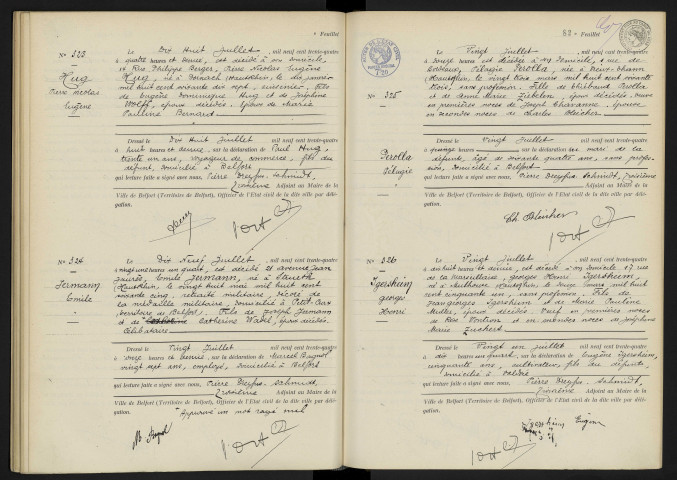 e Feuillet
N° 323
Hug
Pierre Nicolas
Eugène
Le Dix Huit Juillet, mil neuf cent trente-quatre
à quatre heures et demie, est décédé à son domicile,
14 Rue Philippe Berger, Pierre Nicolas Eugène
Hug, né à Dornach (Haut-Rhin), le dix janvier
mil huit cent soixante dix sept, . Fils
de Eugène Dominique Hug et de Joséphine
Wolff, époux décédés. Epoux de Marie
Pauline Bernard
Dressé le Dix Huit Juillet mil neuf cent trente-quatre
à huit heures et demie, sur la déclaration de Paul Hug,
trente un ans, voyageur de commerce, fils du
défunt, domicilié à Belfort
qui lecture faite a signé avec nous, Pierre Dreyfus-Schmidt,
Troisième Adjoint au Maire de la
Ville de Belfort (Territoire de Belfort), Officier de l'Etat civil de la dite ville par délé-
gation.
N° 324
Jermann
Emile
Le Dix Neuf Juillet, mil neuf cent trente-quatre
à vingt une heures un quart, est décédé 21 avenue Jean
Jaurès, Emile Jermann, né à
(Haut-Rhin), le vingt huit mai mil huit cent
soixante cinq, retraité militaire, décoré de
la médaille militaire, domicilié à Petit-Croix
(Territoire de Belfort). Fils de Joseph Jermann
et de Catherine Wahl, époux décédés.
Célibataire
Dressé le Vingt Juillet mil neuf cent trente-quatre
à onze heures et demie, sur la déclaration de Marcel
vingt sept ans, employé, domicilié à Belfort
qui lecture faite a signé avec nous, Pierre Dreyfus-Schmidt,
Troisième Adjoint au Maire de la
Ville de Belfort (Territoire de Belfort), Officier de l'Etat civil de la dite ville par délé-
gation. "Approuvé un mot rayé nul"
82 e Feuillet
N° 325
Perolla
Pélagie
Le Vingt Juillet, mil neuf cent trente-quatre
à douze heures, est décédée à son domicile, 4 rue de
, Pélagie Perolla, née à Vieux-Thann
(Haut-Rhin), le vingt trois mars mil huit cent soixante
trois, sans profession. Fille de Thiébaud Perolla
et de Anne Marie , époux décédés. Veuve
en premières noces de Joseph Charanne, épouse
en secondes noces de Charles Bleicher
Dressé le Vingt Juillet mil neuf cent trente-quatre
à quinze heures, sur la déclaration du mari de la
défunte, âgé de soixante quatre ans, sans profes-
sion, domicilié à Belfort
qui lecture faite a signé avec nous, Pierre Dreyfus-Schmidt, Troisième
Adjoint au Maire de la
Ville de Belfort (Territoire de Belfort), Officier de l'Etat civil de la dite ville par délé-
gation.
Ch. Bleicher
N° 326
Igersheim
Georges
Henri
Le Vingt Juillet, mil neuf cent trente-quatre
à dix huit heures et demie, est décédé en son domicile 17 rue
de la Marseillaise, Georges Henri Igersheim,
né à Mulhouse (Haut-Rhin), le mars mil huit
cent cinquante un, sans profession. Fils de
Jean Georges Igersheim et de Marie Pauline
Muller, époux décédés. Veuf en premières noces
de et en secondes noces de Joséphine
Marie Zuchert
Dressé le Vingt un Juillet mil neuf cent trente-quatre
à dix heures un quart, sur la déclaration de Eugène Igersheim,
cinquante ans, cultivateur, fils du défunt,
domicilié à
qui lecture faite a signé avec nous, Pierre Dreyfus-Schmidt,
Troisième Adjoint au Maire de la
Ville de Belfort (Territoire de Belfort), Officier de l'Etat civil de la dite ville par délé-
gation.
Igersheim Eugène